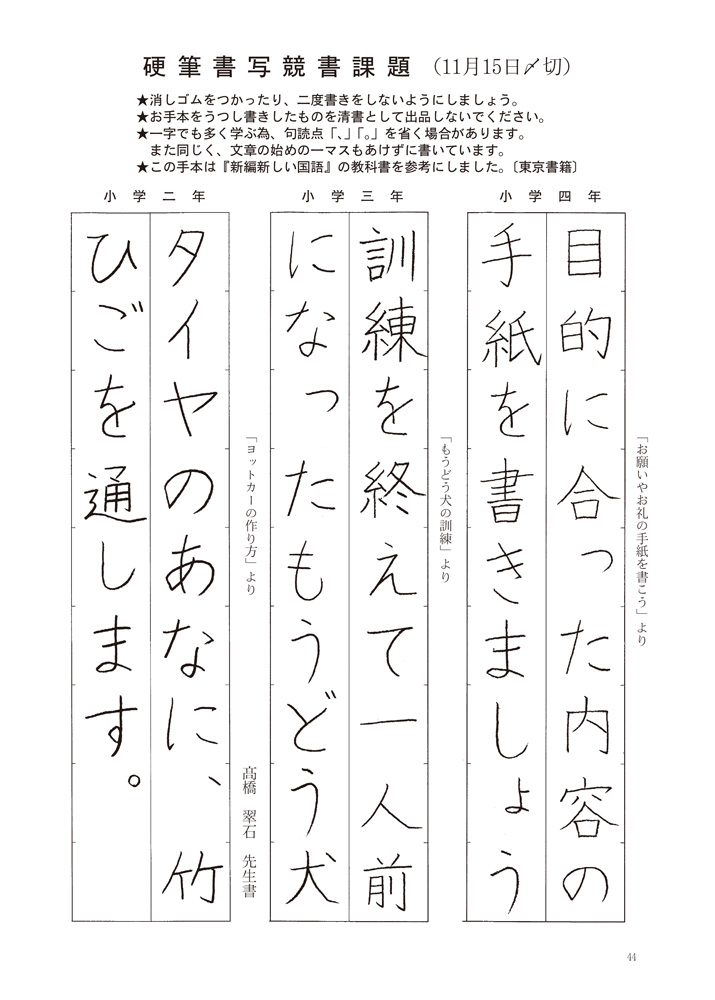 硬筆書写競書課題 (11月15日〆切)
★消しゴムをつかったり、二度書きをしないようにしましょう。
★お手本をうつし書きしたものを清書として出品しないでください。
★一字でも多く学ぶ為、句読点「、」「。」を省く場合があります。
また同じく、文章の始めの一マスもあけずに書いています。
★この手本は『新編新しい国語』の教科書を参考にしました。〔東京書籍〕
小学四年
「お願いやお礼の手紙を書こう」より
目的に合った内容の
手紙を書きましょう
小学三年
「もうどう犬の訓練」より
訓練を終えて一人前
になったもうどう犬
小学二年
「ヨットカーの作り方」より
髙橋 翠石 先生書
タイヤのあなに、竹
ひごを通します。
44